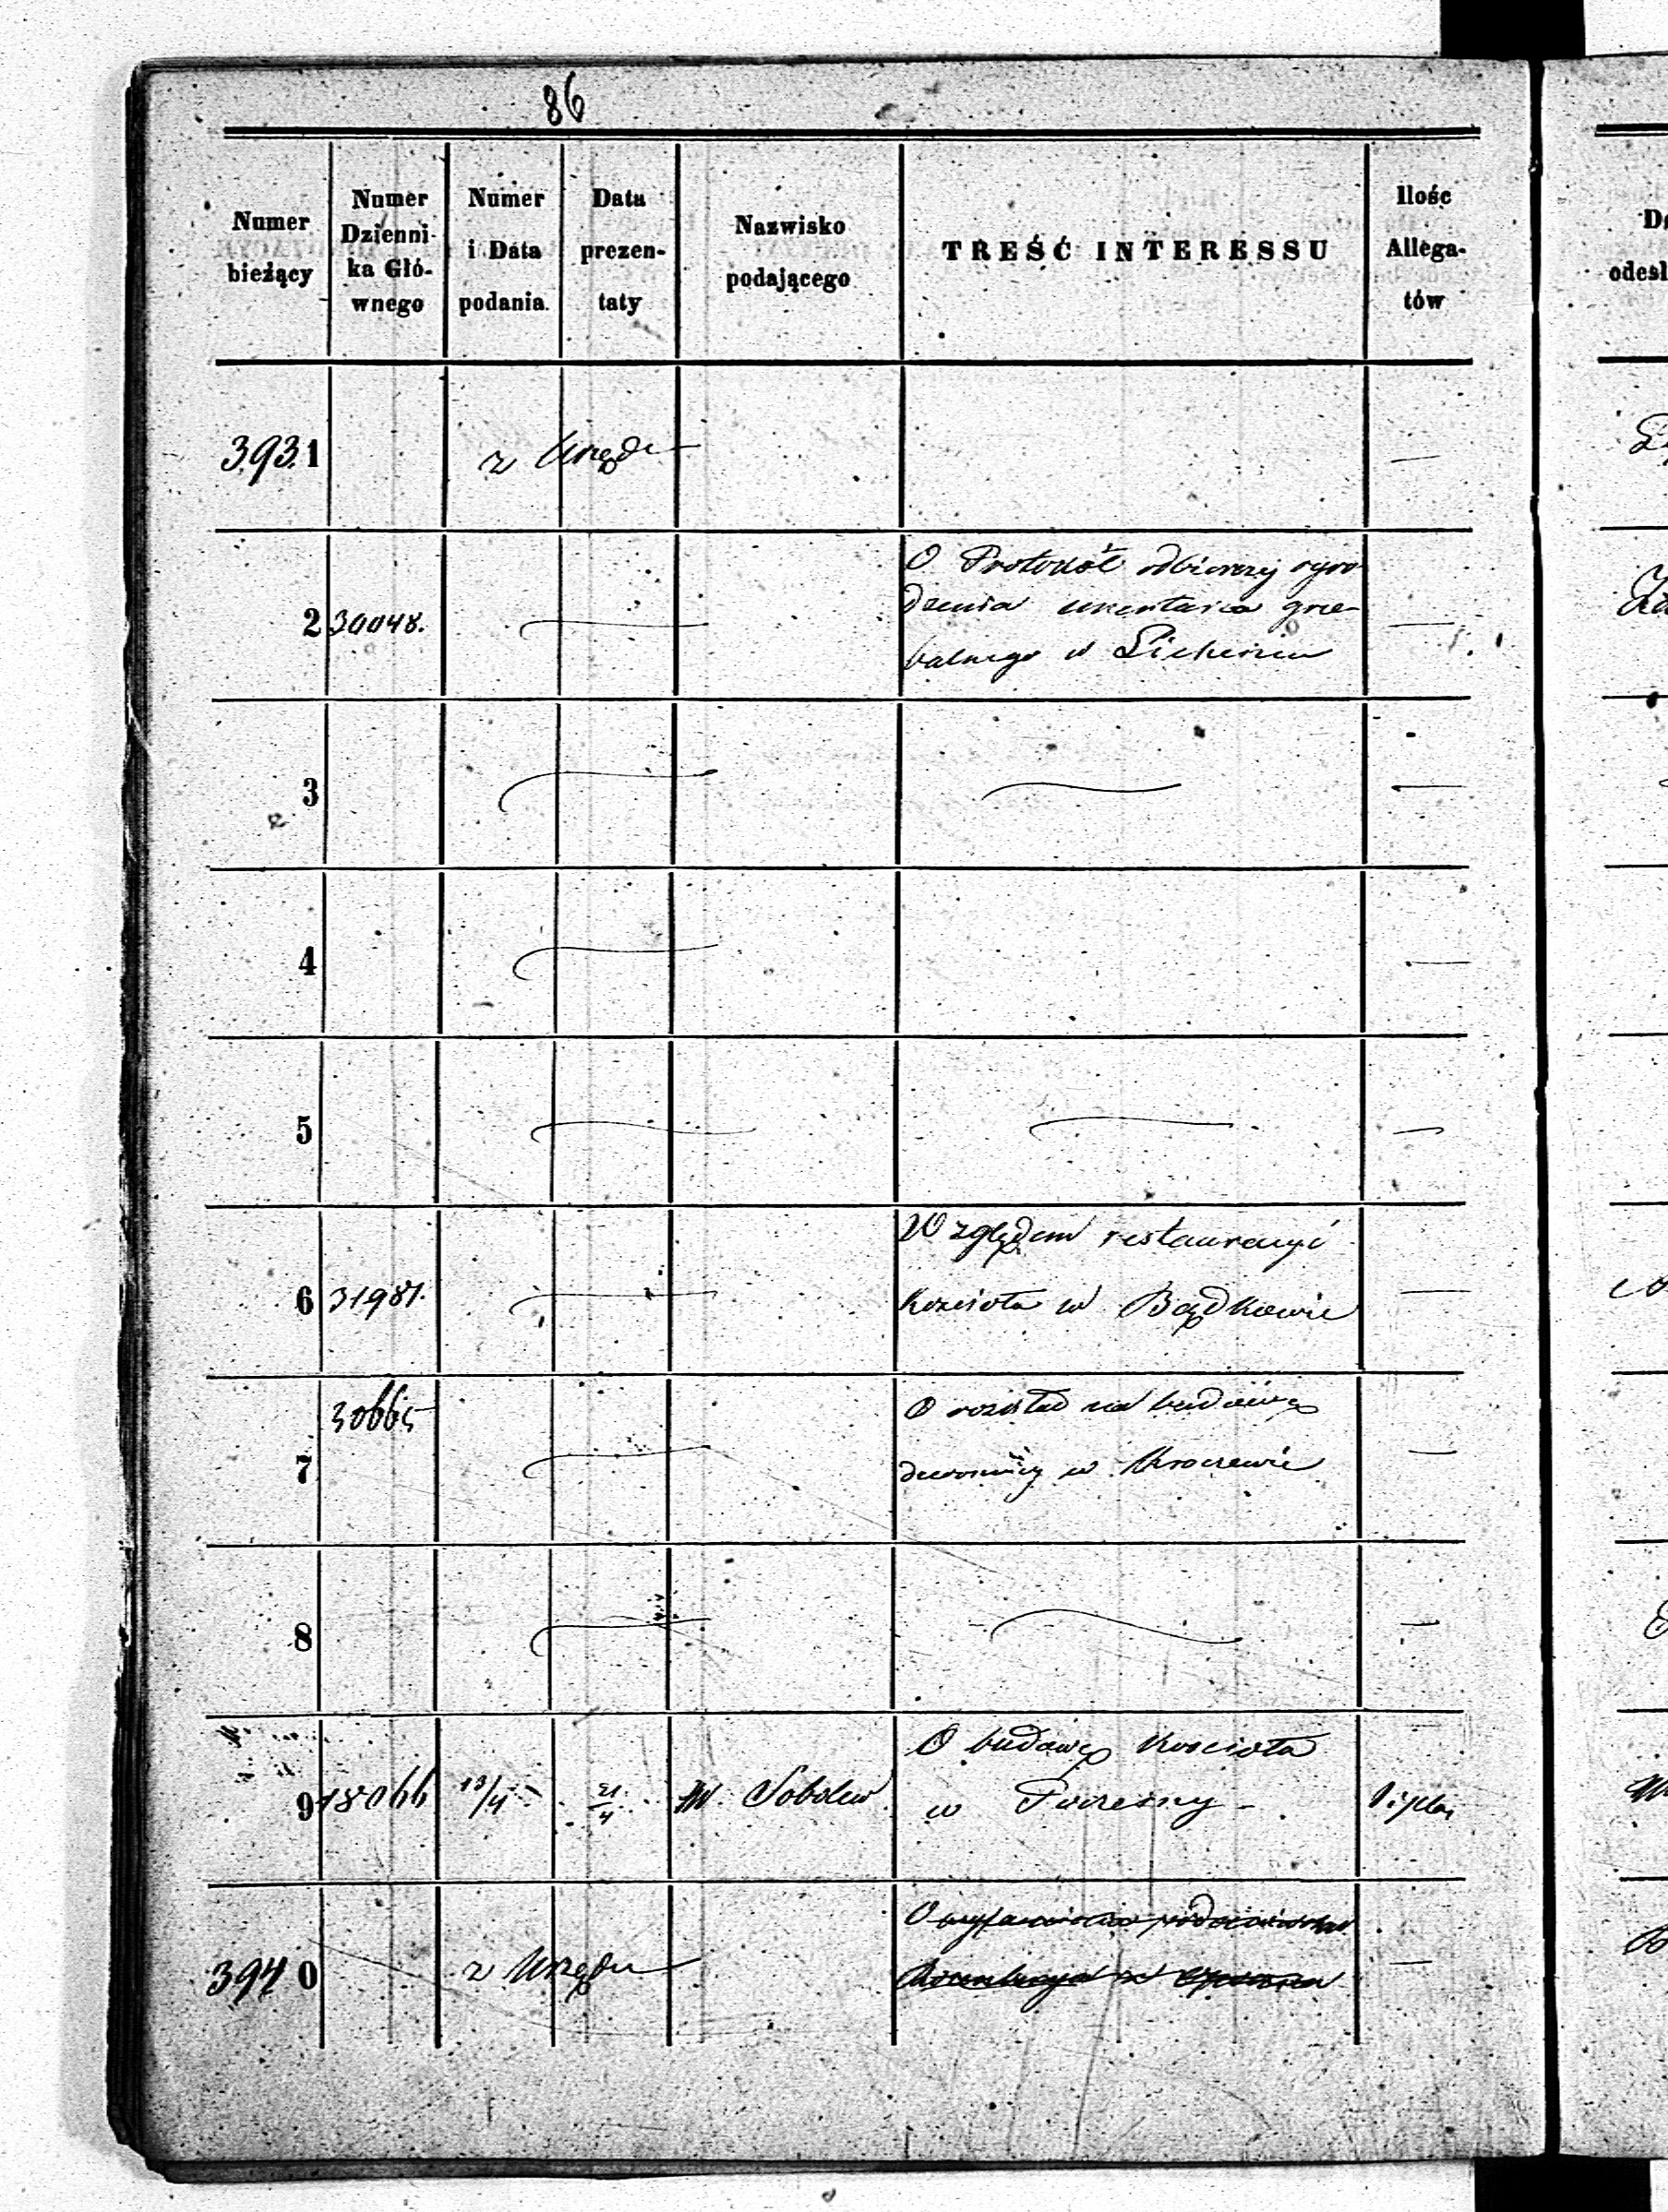 86
Numer bieżący
Numer Dzienni- ka Głó- wnego
Numer i Data podania
Data prezen- taty
Nazwisko podającego
TREŚĆ INTERESSU
Ilośc Allega- tów
3931 z Urzędu —
2 30048. — O Protokół odbiorczy ogro
dzenia cmentarza grze-
balnego w Licheniu —
3 — — —
4 — —
5 — — —
6 31981. — Względem restauracyi
Kościoła w Bądkowie —
7 30665 — O rozkład na budowę
dzwonnicy w Kroczewie —
8 — — —
9 18066 13/4 21/4 W Sobolew O budowę Kościoła
w —
3940 z Urzędu O —